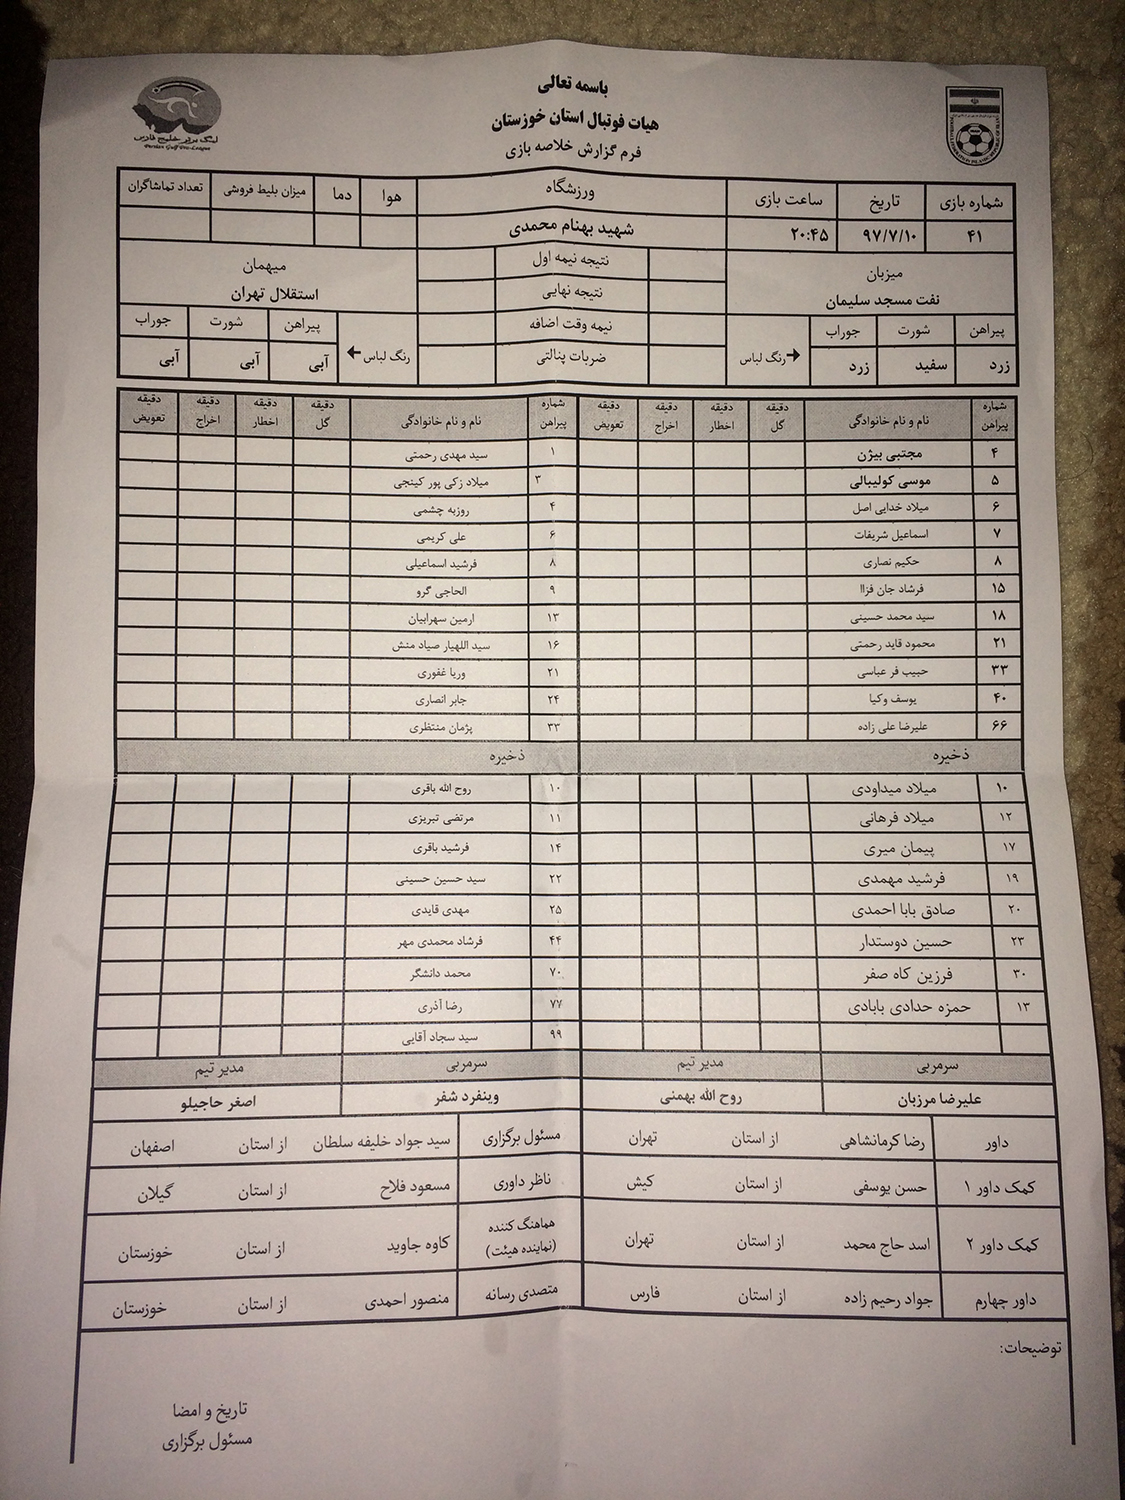 باسمه تعالی
هیات فوتبال استان خوزستان
فرم گزارش خلاصه بازی
لیگ برتر خلیج فارس
Persian Gulf Pro-League
شماره بازی تاریخ ساعت بازی ورزشگاه هوا دما میزان بلیط فروشی تعداد تماشاگران
۴۱ ۹۷/۷/۱۰ ۲۰:۴۵ شهید بهنام محمدی
میزبان نتیجه نیمه اول میهمان
نفت مسجد سلیمان نتیجه نهایی استقلال تهران
پیراهن شورت جوراب رنگ لباس نیمه وقت اضافه رنگ لباس پیراهن شورت جوراب
زرد سفید زرد ضربات پنالتی آبی آبی آبی
شماره پیراهن نام و نام خانوادگی دقیقه گل دقیقه اخطار دقیقه اخراج دقیقه تعویض شماره پیراهن نام و نام خانوادگی دقیقه گل دقیقه اخطار دقیقه اخراج دقیقه تعویض
۴ مجتبی بیژن ۱ سید مهدی رحمتی
۵ موسی کولیبالی ۳ میلاد زکی پور کینجی
۶ میلاد خدایی اصل ۴ روزبه چشمی
۷ اسماعیل شریفات ۶ علی کریمی
۸ حکیم نصاری ۸ فرشید اسماعیلی
۱۵ فرشاد جان فزاا ۹ الحاجی گرو
۱۸ سید محمد حسینی ۱۳ ارمین سهرابیان
۲۱ محمود قاید رحمتی ۱۶ سید اللهیار صیاد منش
۳۳ حبیب فر عباسی ۲۱ وریا غفوری
۴۰ یوسف وکیا ۲۴ جابر انصاری
۶۶ علیرضا علی زاده ۳۳ پژمان منتظری
ذخیره ذخیره
۱۰ میلاد میداودی ۱۰ روح الله باقری
۱۲ میلاد فرهانی ۱۱ مرتضی تبریزی
۱۷ پیمان میری ۱۴ فرشید باقری
۱۹ فرشید مهمدی ۲۲ سید حسین حسینی
۲۰ صادق بابا احمدی ۲۵ مهدی قایدی
۲۳ حسین دوستدار ۴۴ فرشاد محمدی مهر
۳۰ فرزین کاه صفر ۷۰ محمد دانشگر
۱۳ حمزه حدادی بابادی ۷۷ رضا آذری
۹۹ سید سجاد آقایی
سرمربی مدیر تیم سرمربی مدیر تیم
علیرضا مرزبان روح الله بهمنی وینفرد شفر اصغر حاجیلو
داور رضا کرمانشاهی از استان تهران مسئول برگزاری سید جواد خلیفه سلطان از استان اصفهان
کمک داور ۱ حسن یوسفی از استان کیش ناظر داوری مسعود فلاح از استان گیلان
کمک داور ۲ اسد حاج محمد از استان تهران هماهنگ کننده (نماینده هیئت) کاوه جاوید از استان خوزستان
داور چهارم جواد رحیم زاده از استان فارس متصدی رسانه منصور احمدی از استان خوزستان
توضیحات:
تاریخ و امضا
مسئول برگزاری